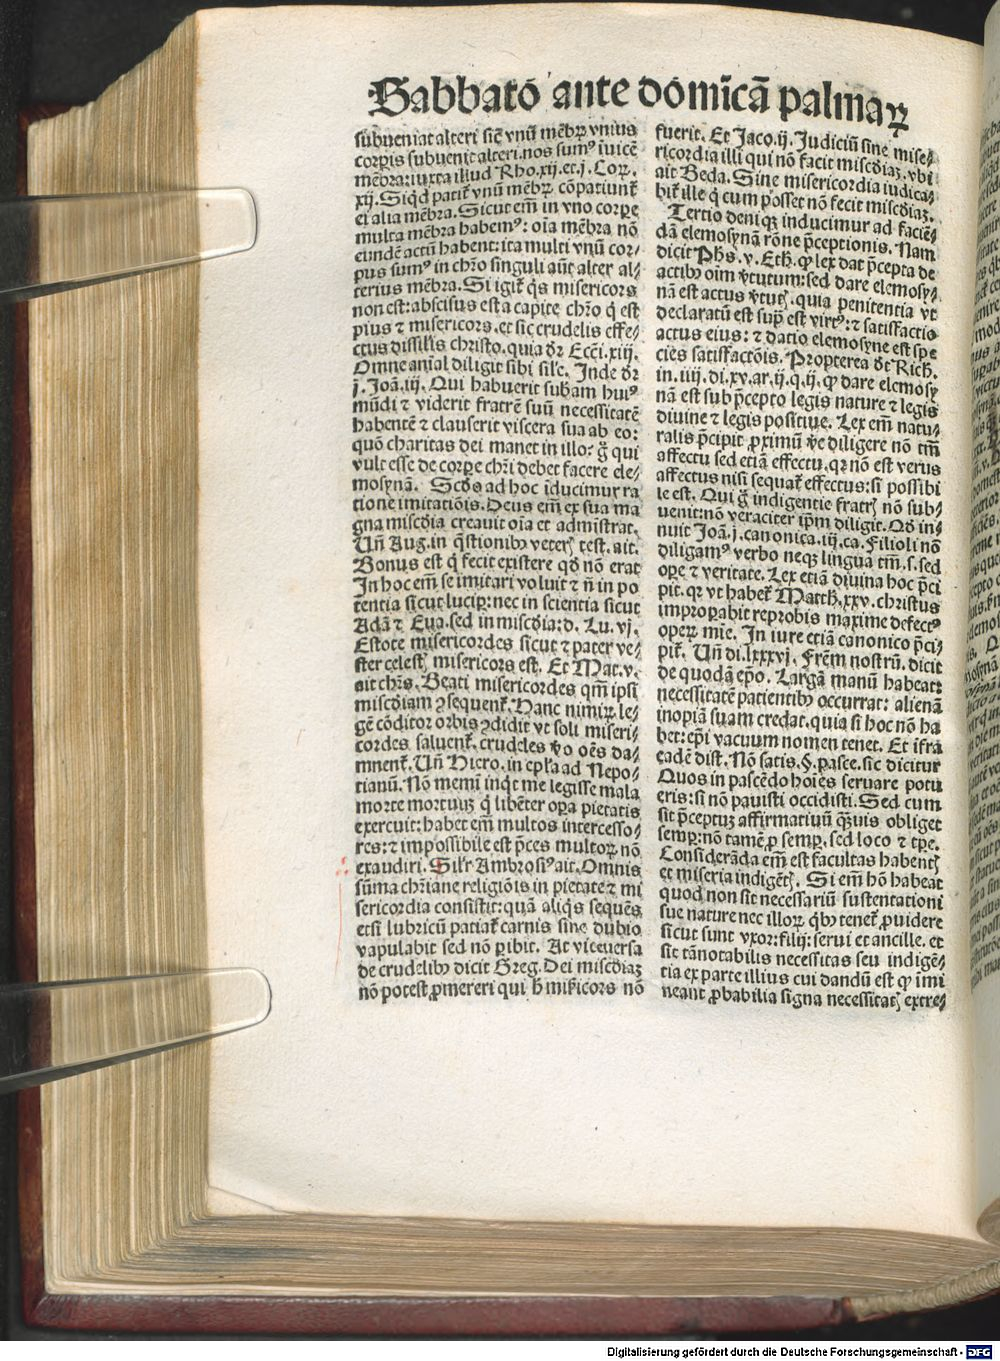 Sabbatō ante dōmĩcã palmaꝝ
subueniat alteri sic̃ vnũ mẽbꝝ vnius
corpis subuenit alteri.nos sumꝰ iuicẽ
mẽbra:iuxta illud Rho.xij.et.j. Coꝝ.
xij. Siqd̃ patit̃ vnũ mẽbꝝ cõpatiunt̃
ei alia mẽbra. Sicut em̃ in vno corpe
multa mẽbra habemꝰ: oĩa mẽbra nõ
eundẽ actũ habent: ita multi vnũ cor⸗
pus sumꝰ in chr̃o singuli aũt alter al⸗
terius mẽbra. Si igit̃ qs misericors
non est:abscisus est a capite chr̃o q̃ est
pius ⁊ misericors.et sic crudelis effe⸗
ctus dissil̃is christo.quia dr̃ Ecc̃i.xiij.
Omne anĩal diligit sibi sil̃e. Inde dr̃
j. Joã.iij. Qui habuerit subãm huiꝰ
mũdi ⁊ viderit fratrẽ suũ necessitatẽ
habentẽ ⁊ clauserit viscera sua ab eo:
quõ charitas dei manet in illo? g̃ qui
vult esse de corpe chr̃i debet facere ele⸗
mosynã. Scd̃s ad hoc ĩducimur ra
tione imitatiõis. Deus em̃ ex sua ma
gna misc̃dia creauit oĩa et admĩstrat.
Uñ Aug.in q̃stionibꝰ veterꝭ test. ait.
Bonus est q̃ fecit existere qd̃ nõ erat
In hoc em̃ se imitari voluit ⁊ ñ in po
tentia sicut lucip̃: nec in scientia sicut
Adã ⁊ Eua.sed in misc̃dia:d. Lu. vj.
Estote misericordes sicut ⁊ pater ve⸗
ster celestꝭ misericors est. Et Mat.v.
ait chr̃s. Beati misericordes qm̃ ipsi
misc̃diam ꝯsequent̃. Hanc nimiꝝ le⸗
gẽ cõditor orbis ꝯdidit vt soli miseri⸗
cordes saluent̃.crudeles v̾o oẽs da⸗
mnent̃. Uñ Hiero.in epl̃a ad Nepo⸗
tianũ. Nõ memĩ inqt me legisse mala
morte mortuuꝫ q̃ libẽter opa pietatis
exercuit:habet em̃ multos intercesso⸗
res:⁊ impossibile est p̃ces multoꝝ nõ
exaudiri. Sil̃r Ambrosiꝰ ait. Omnis
sũma chr̃iane religiõis in pietate ⁊ mi
sericordia consistit:quã aliqs sequẽs
etsi lubricũ patiat̃ carnis sine dubio
vapulabit sed nõ ꝑibit. At viceuersa
de crudelibꝰ dicit Greg. Dei misc̃diaꝫ
nõ potest ꝓmereri qui h̃ mĩs̃icors nõ
fuerit. Et Jaco.ij. Judiciũ sine mise⸗
ricordia illi qui nõ facit misc̃diaꝫ.vbi
ait Beda. Sine misericordia iudica⸗
bit̃ ille q̃ cum posset nõ fecit misc̃diaꝫ.
Tertio deniqꝫ inducimur ad faciẽ⸗
dã elemosynã rõne p̃ceptionis. Nam
dicit Phs̃.v. Eth̃. ꝙ lex dat p̃cepta de
actibꝰ oĩm v̾tutum:sed dare elemosy⸗
nã est actus v̾tutꝭ.quia penitentia vt
declaratũ est supͣ est virtꝰ:⁊ satisfactio
actus eius:⁊ datio elemosyne est spe
cies satisfactõis. Propterea dt̃ Rich̃.
in.iiij.di.xv.ar.ij.q.ij.ꝙ dare elemosy
nã est sub p̃cepto legis nature ⁊ legis
diuine ⁊ legis positiue. Lex em̃ natu⸗
ralis p̃cipit ꝓximũ v̾e diligere nõ tm̃
affectu sed etiã effectu.qꝛ nõ est verus
affectus nisi sequat̃ effectus:si possibi
le est. Qui g̃ indigentie fratrꝭ nõ sub⸗
uenit:nõ veraciter ip̃m diligit. Qd̃ in⸗
nuit Joã.j.canonica.iij.ca. Filioli nõ
diligamꝰ verbo neqꝫ lingua tm̃.s.sed
ope ⁊ veritate. Lex etiã diuina hoc p̃ci
pit.qꝛ vt habet̃ Matth̃.xxv.christus
improꝑabit reprobis maxime defectꝰ
opeꝝ mĩe. In iure etiã canonico p̃ci⸗
pit̃. Uñ di.lxxxvj. Frẽm nostrũ. dicit
de quodã ep̃o. Largã manũ habeat:
necessitatẽ patientibꝰ occurrat: alienã
inopiã suam credat.quia si hoc nõ ha
bet:ep̃i vacuum nomen tenet. Et ĩfra
eadẽ dist. Nõ satis.§.pasce.sic dicitur
Quos in pascẽdo hoĩes seruare potu
eris:si nõ pauisti occidisti. Sed cum
sit p̃ceptuꝫ affirmatiuũ q̃ꝫuis obliget
semꝑ:nõ tamẽ ꝓ semꝑ.sed loco ⁊ tpe.
Considerãda em̃ est facultas habentꝭ
et miseria indigẽtꝭ. Si em̃ hõ habeat
quod non sit necessariũ sustentationi
sue nature nec illoꝝ qbꝰ tenet̃ ꝓuidere
sicut sunt vxor:filij:serui et ancille. et
sit tã notabilis necessitas seu indigẽ⸗
tia ex parte illius cui dandũ est ꝙ ĩmi
neant ꝓbabilia signa necessitatꝭ extre⸗
Digitalisierung gefördert durch die Deutsche Forschungsgemeinschaft - DFG